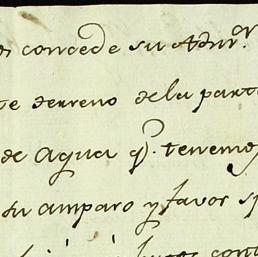 concede su Admr.
te terreno de la part
de agua q. tenemo
su amparo y favor